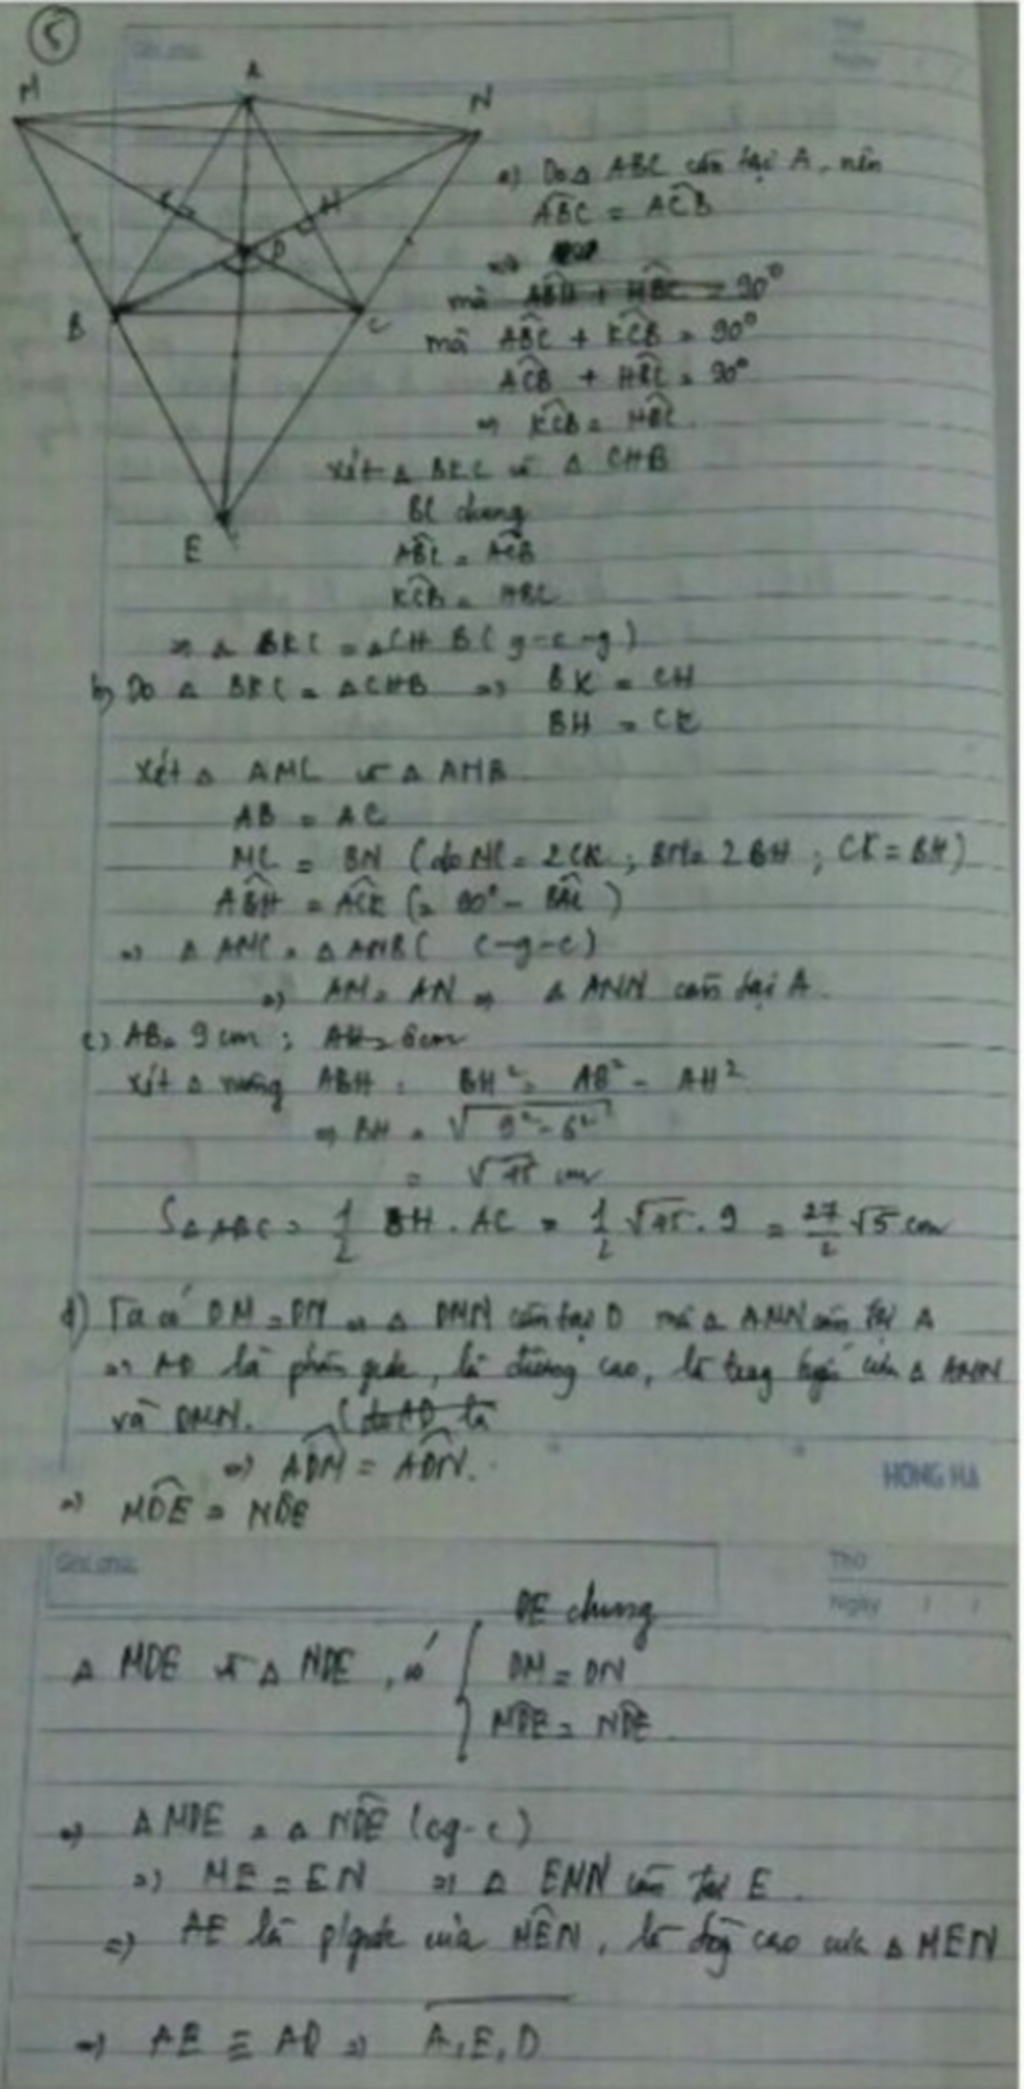 5
Ghi chú
Thứ
Ngày
M
A
N
K
H
D
B
C
E
a) Do Δ ABC cân tại A, nên
ABC = ACB
mà ABH + HBC = 90°
mà ABC + KCB = 90°
ACB + HBC = 90°
=> KCB = HBC.
Xét Δ BKC và Δ CHB
BC chung
ABC = ACB
KCB = HBC
=> Δ BKC = Δ CHB (g-c-g)
b) Do Δ BKC = Δ CHB => BK = CH
BH = CK
Xét Δ AMC và Δ ANB
AB = AC
MC = BN (do MC = 2CK ; BN = 2BH ; CK = BH)
ABH = ACK (= 90° - BAC)
=> Δ AMC = Δ ANB (c-g-c)
=> AM = AN => Δ AMN cân tại A.
c) AB = 9cm ; AH = 6cm
Xét Δ vuông ABH : BH² = AB² - AH²
=> BH = √9² - 6²
= √45 cm
SΔABC = 1/2 BH . AC = 1/2 √45 . 9 = 27/2 √5 cm
d) Ta có DM = DN => Δ DMN cân tại D mà Δ AMN cân tại A
=> AD là phân giác, là đường cao, là trung tuyến của Δ AMN
và DMN. (do AD là
=> ADM = ADN.
=> MDE = NDE
HONG HA
Ghi chú
Thứ
Ngày / /
DE chung
Δ MDE và Δ NDE, có { DM = DN
MDE = NDE.
=> Δ MDE = Δ NDE (cg-c)
=> ME = EN => Δ EMN cân tại E.
=> AE là p/giác của MEN, là đg cao của Δ MEN
=> AE ≡ AD => A, E, D